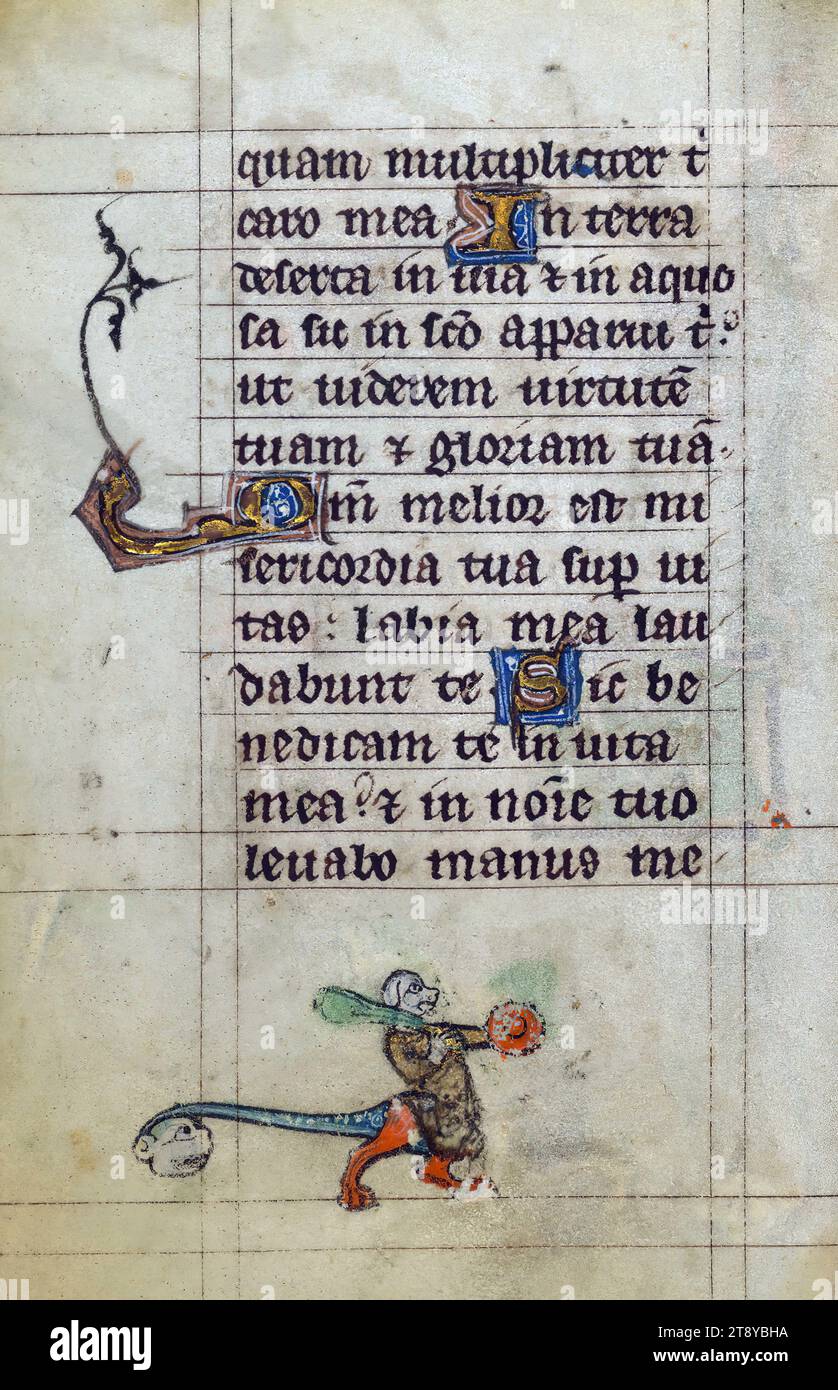 quam multipliciter t̉
caro mea. In terra
deserta in uia ⁊ in aquo
sa sic in sc̄o apparui t̉:
ut uiderem uirtutē
tuam ⁊ gloriam tuā.
Qm̄ melior est mi
sericordia tua sup ui
tas: labia mea lau
dabunt te. Sic be
nedicam te in uita
mea: ⁊ in noīe tuo
leuabo manus me
alamy
Image ID: 2T8YBHA
www.alamy.com